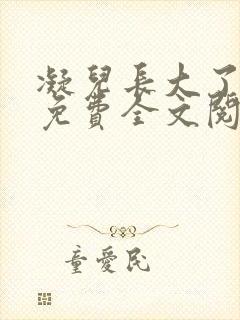 凝兒長大了
免費全文閱
童愛民